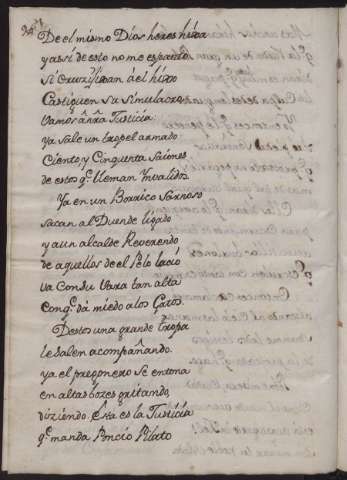 De el mismo Dios heres hixa
y assi de esto no me espanto
si Cruzifixan del hixo
Castiguen su simulacro.
Vamos a nrã Justicia:
ya sale un tropel armado
Ciento, y Cinquenta saiones
de estos q.e llaman Invalidos.
Ya en un Borrico sarnoso
sacan al Duende ligado
y a un alcalde Reverendo
de aquellos de el Pelo lacio
va con su Vara tan alta
con q.e da miedo a los Gatos.
De estos una grande tropa
le salen acompañando.
ya el pregonero se entona
en altas bozes gritando,
diziendo Esta es la Justicia
q.e manda Poncio Pilato